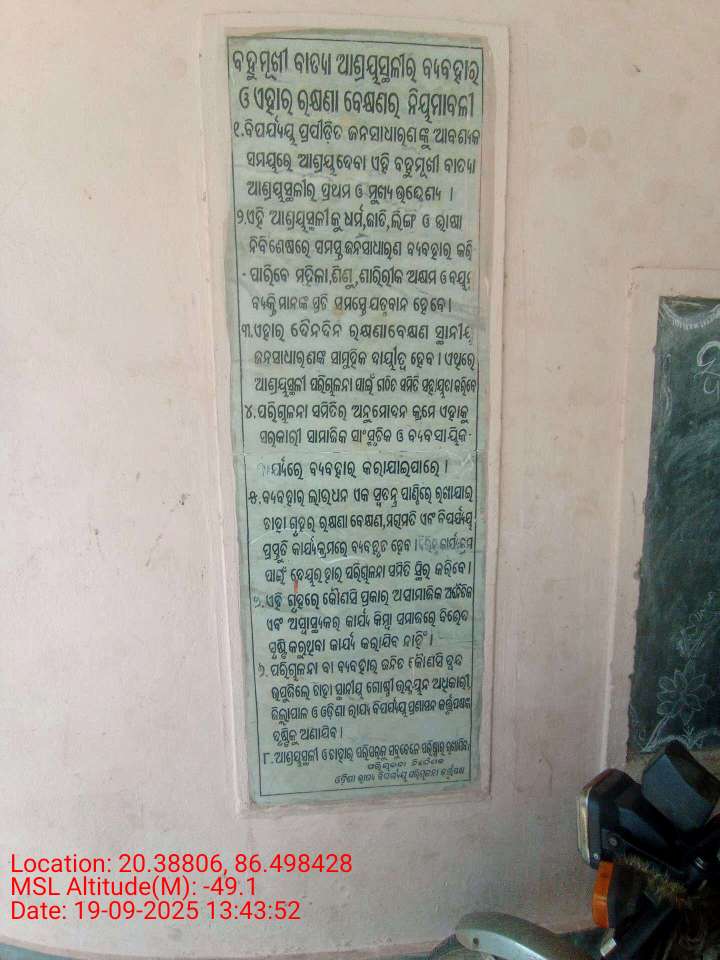 ବହୁମୂଖୀ ବାତ୍ୟା ଆଶ୍ରୟସ୍ଥଳୀର ବ୍ୟବହାର
ଓ ଏହାର ରକ୍ଷଣା ବେକ୍ଷଣର ନିୟମାବଳୀ
୧.ବିପର୍ଯ୍ୟୟ ପ୍ରପୀଡ଼ିତ ଜନସାଧାରଣଙ୍କୁ ଆବଶ୍ୟକ
ସମୟରେ ଆଶ୍ରୟଦେବା ଏହି ବହୁମୂଖୀ ବାତ୍ୟା
ଆଶ୍ରୟସ୍ଥଳୀର ପ୍ରଥମ ଓ ମୁଖ୍ୟ ଉଦ୍ଦେଶ୍ୟ ।
୨.ଏହି ଆଶ୍ରୟସ୍ଥଳୀକୁ ଧର୍ମ,ଜାତି,ଲିଙ୍ଗ ଓ ଭାଷା
ନିର୍ବିଶେଷରେ ସମସ୍ତ ଜନସାଧାରଣ ବ୍ୟବହାର କରି
ପାରିବେ ମହିଳା,ଶିଶୁ,ଶାରିରୀକ ଅକ୍ଷମ ଓ ବୟସ୍କ
ବ୍ୟକ୍ତି ମାନଙ୍କ ପ୍ରତି ସମସ୍ତେ ଯତ୍ନବାନ ହେବେ ।
୩.ଏହାର ଦୈନଦିନ ରକ୍ଷଣାବେକ୍ଷଣ ସ୍ଥାନୀୟ
ଜନସାଧାରଣଙ୍କ ସାମୁହିକ ଦାୟୀତ୍ୱ ହେବ । ଏଥିରେ
ଆଶ୍ରୟସ୍ଥଳୀ ପରିଚାଳନା ପାଇଁ ଗଠିତ ସମିତି ସହାୟତା କରିବେ
୪.ପରିଚାଳନା ସମିତିର ଅନୁମୋଦନ କ୍ରମେ ଏହାକୁ
ସରକାରୀ ସାମାଜିକ ସାଂସ୍କୃତିକ ଓ ବ୍ୟବସାୟିକ-
କାର୍ଯ୍ୟରେ ବ୍ୟବହାର କରାଯାଇପାରେ ।
୫.ବ୍ୟବହାର ଲାଭଧନ ଏକ ସ୍ୱତନ୍ତ୍ର ପାଣ୍ଠିରେ ରଖାଯାଇ
ତାହା ଗୃହର ରକ୍ଷଣା ବେକ୍ଷଣ,ମରାମତି ଏବଂ ବିପର୍ଯ୍ୟୟ
ପ୍ରସ୍ତୁତି କାର୍ଯ୍ୟକ୍ରମରେ ବ୍ୟବହୃତ ହେବ ।
ପାଇଁ ଦେୟର ହାର ପରିଚାଳନା ସମିତି ସ୍ଥିର କରିବେ ।
୬.ଏହି ଗୃହରେ କୌଣସି ପ୍ରକାର ଅସାମାଜିକ ଅନୈତିକ
ଏବଂ ଅସ୍ୱାସ୍ଥ୍ୟକର କାର୍ଯ୍ୟ କିମ୍ବା ସମାଜରେ ବିଭେଦ
ସୃଷ୍ଟି କରୁଥିବା କାର୍ଯ୍ୟ କରାଯିବ ନାହିଁ ।
୭.ପରିଚାଳନା ବା ବ୍ୟବହାର ଜନିତ କୌଣସି ଦ୍ୱନ୍ଦ
ଉପୁଜିଲେ ତାହା ସ୍ଥାନୀୟ ଗୋଷ୍ଠୀ ଉନ୍ନୟନ ଅଧିକାରୀ,
ଜିଲ୍ଲାପାଳ ଓ ଓଡ଼ିଶା ରାଜ୍ୟ ବିପର୍ଯ୍ୟୟ ପ୍ରଶାସନ କର୍ତ୍ତୃପକ୍ଷଙ୍କ
ଦୃଷ୍ଟିକୁ ଅଣାଯିବ ।
୮.ଆଶ୍ରୟସ୍ଥଳୀ ଓ ତାହାର ପରିସରକୁ ସବୁବେଳେ ପରିଷ୍କାର ରଖାଯିବ ।
ପରିଚାଳନା ନିର୍ଦ୍ଦେଶକ
ଓଡ଼ିଶା ରାଜ୍ୟ ବିପର୍ଯ୍ୟୟ ପରିଚାଳନା କର୍ତ୍ତୃପକ୍ଷ
Location: 20.38806, 86.498428
MSL Altitude(M): -49.1
Date: 19-09-2025 13:43:52